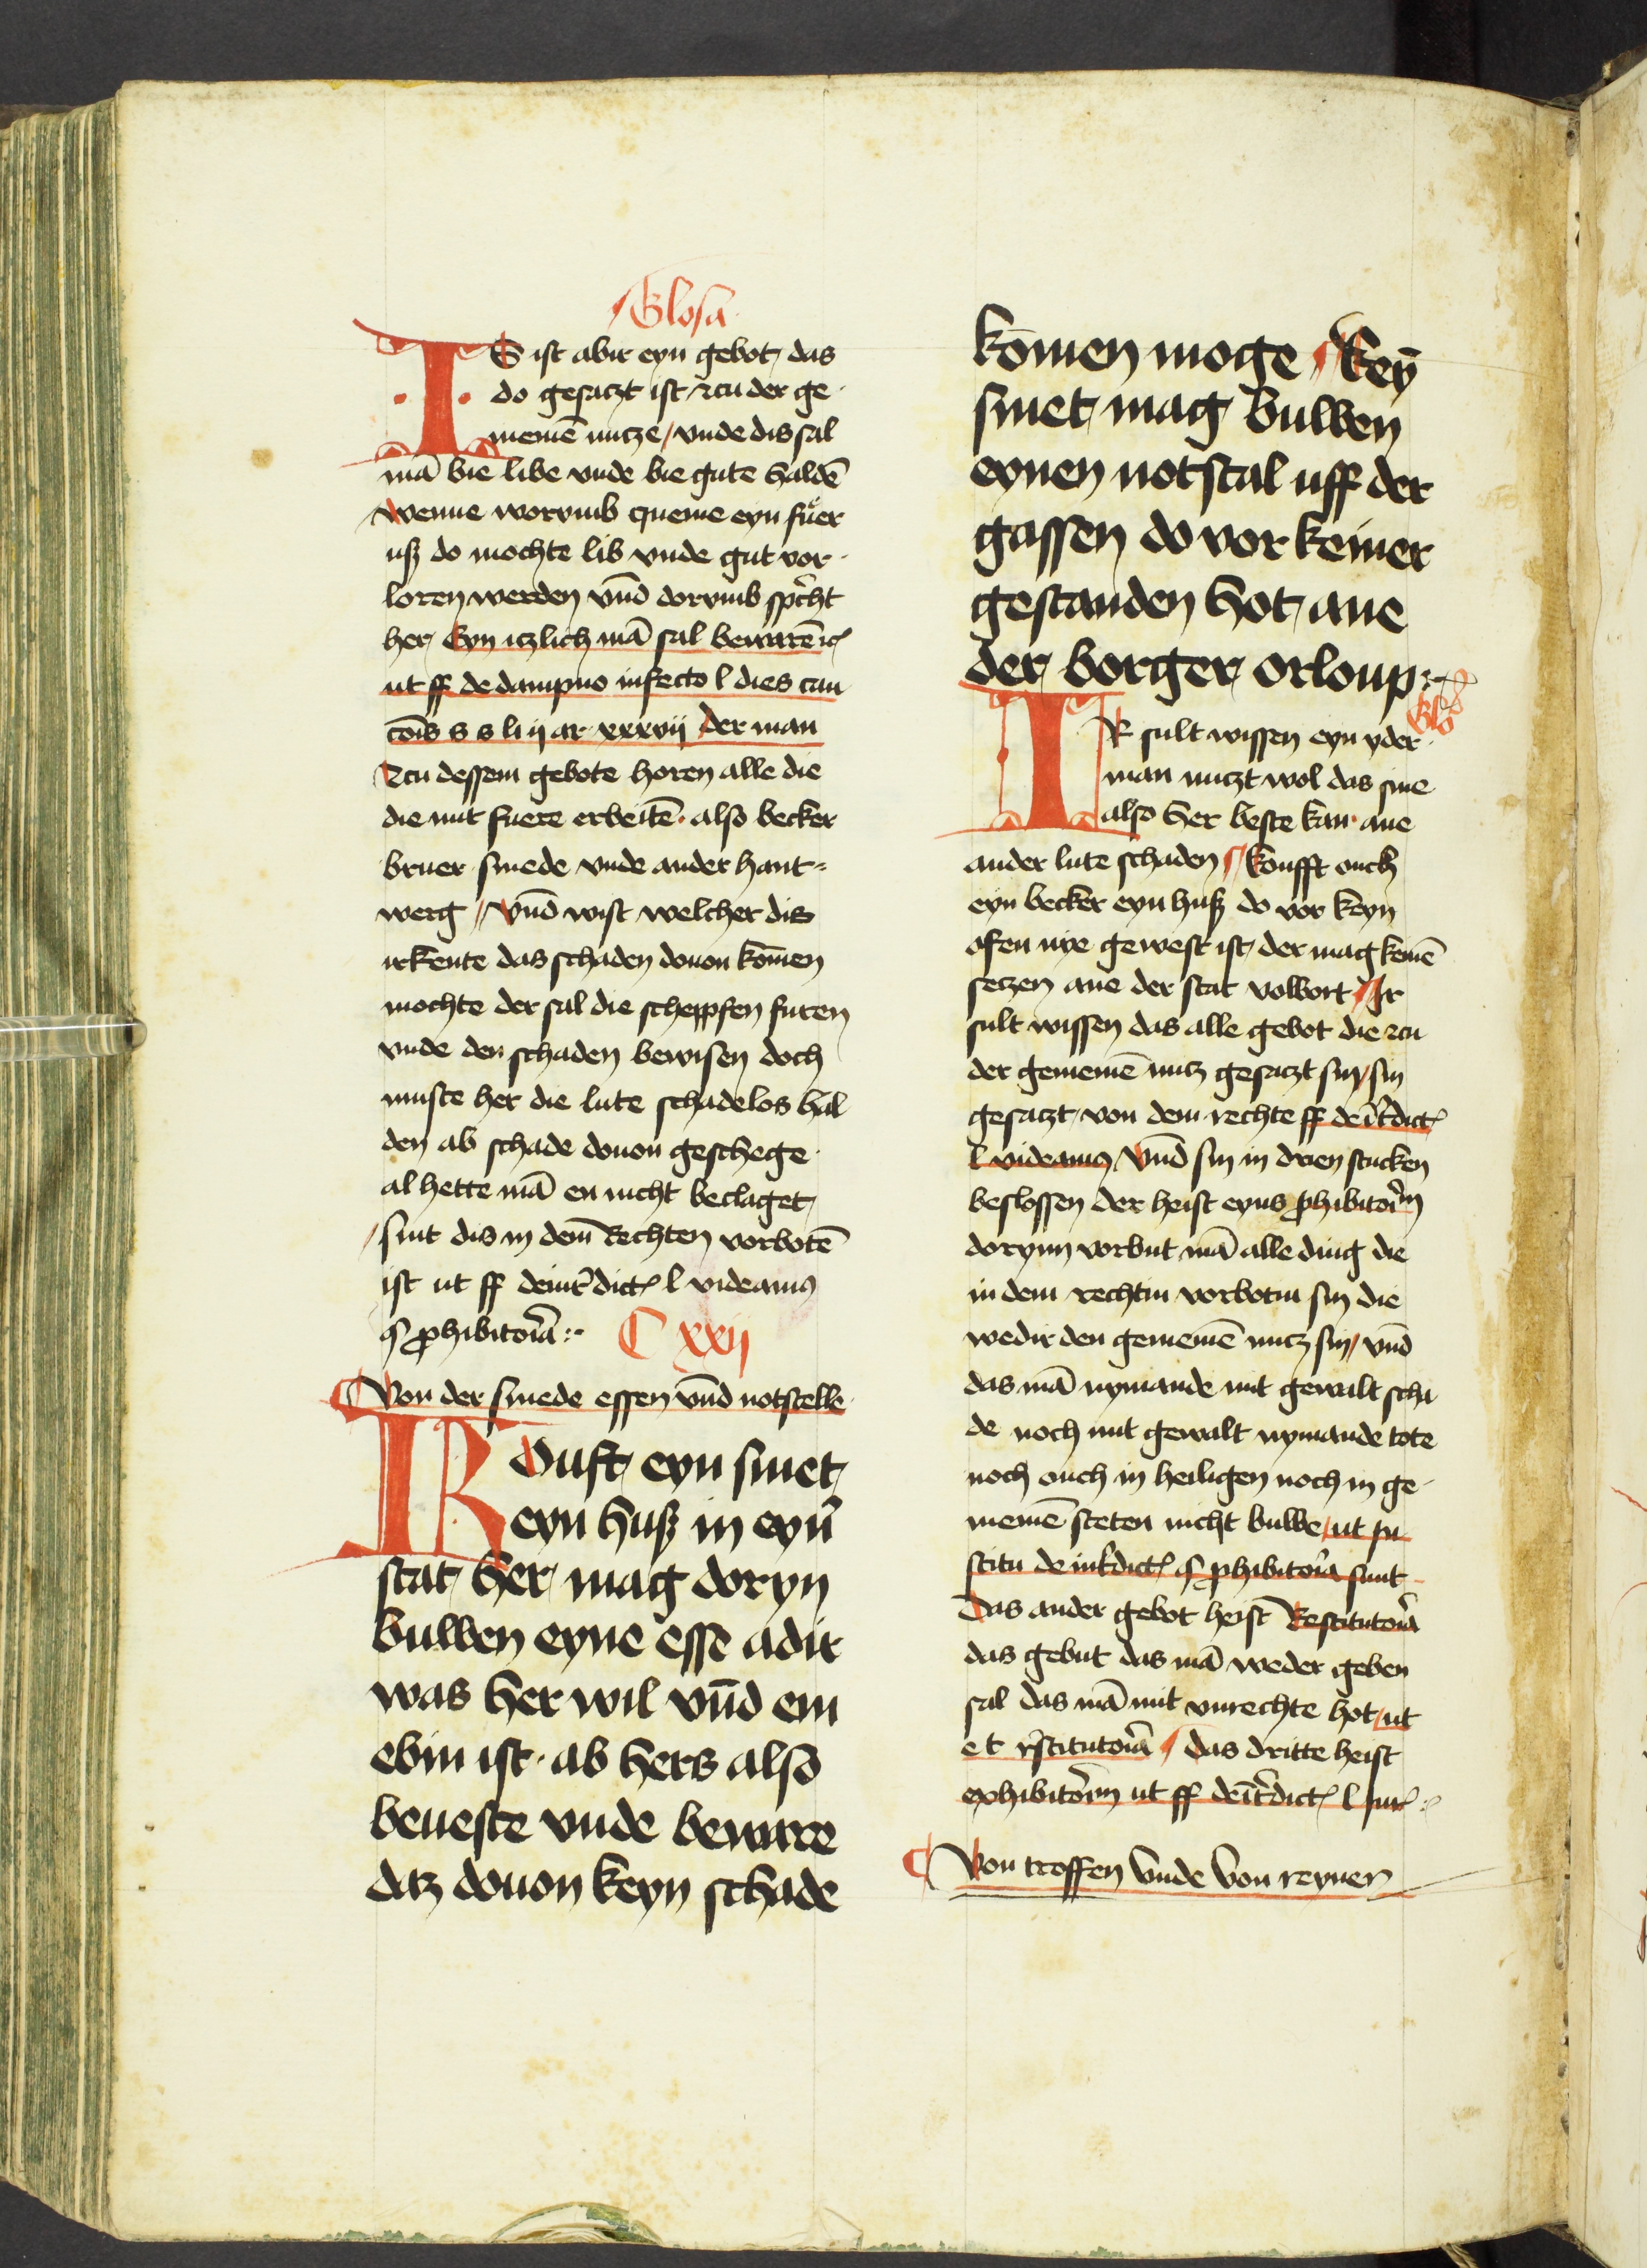 Glosa
IS ist abir eyn gebot das
do gesaczt ist czu der ge
meinē nucze / vnde dis sal
mā bie libe vnde bie gute haldē
wenne worvmb queme eyn fuͤer
uß do mochte lib vnde gut vor
loren werden vn̄d dorvmb sp̄cht
her Eyn iczlich mā sal bewarē ꝛc
ut ff de dampno infecto l dies cau
cōis s s li ij ar xxxvij der man
Tzcu dessem gebote horen alle die
die mit fuere erbeitē · also becker
bruer smede vnde ander hant-
werg / vn̄d wist welcher dis
irkente das schaden douon kōmen
mochte der sal die scheppfen furen
vnde den schaden bewisen doch
muste her die lute schadelos hal
den ab schade douon geschege
al hette mā en nicht beclaget
sint dis in dem̄ Rechten vorbotē
ist ut ff deint̄dict l videamꝰ
§ ꝓhibitor̄a :· C xxij
Von der smede essen vn̄d notstelle
Kouft eyn smet
eyn huß in eyn̄
stat her mag doryn
buwen eyne esse adir
was her wil vn̄d em
ebin ist · ab hers also
beueste vnde beware
daz douon keyn schade
kōmen moge / keyn̄
smet mag buwen
eynen notstal uff der
gassen do vor keiner
gestanden hot ane
der borger orloup :·
Glo
IR sult wissen eyn yder
man nuczt wol das sine
also her beste kan · ane
ander lute schaden / koufft ouch
eyn becker eyn huß do vor keyn
ofen nye gewest ist / der mag keinē
seczen ane der stat volwort / Ir
sult wissen das alle gebot die zcu
der gemeinē nucz gesaczt sin / sin
gesaczt von dem rechte ff deīt̄dict
l videamꝰ / vn̄d sin in drien stucken
beslossen der heist eyns ꝓhibitor̄m
dorynn vorbut mā alle ding die
in dem rechtin vorbotin sin die
wedir den gemeinē nucz sin / vn̄d
das mā nymande mit gewalt scha
de noch mit gewalt nymande tote
noch ouch in heiligen noch in ge
meinē steten nicht buwe / ut in
stitu de int̄dict § ꝓhibitor̄a sunt
Das ander gebot heist Restitutor̄a
das gebut das mā weder geben
sal das mā mit vnrechte hot / ut
e t r̄stitutor̄a / das dritte heist
exhibitor̄m ut ff deīt̄dict l sūt :·
Von troffen vnde von reyner